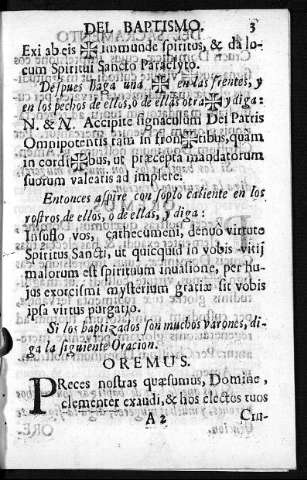 DEL BAPTISMO. 3
Exi ab eis ✠ immunde spiritus, & dà lo-
cum Spiritui Sancto Paraclyto.
Despues haga una ✠ en las frentes, y
en los pechos de ellos, ò de ellas otra ✠ y diga:
N. & N. Accipite signaculum Dei Patris
Omnipotentis tam in fron✠tibus, quam
in cordi✠bus, ut præcepta mandatorum
suorum valeatis ad implere.
Entonces aspire con soplo caliente en los
rostros de ellos, ò de ellas, y diga:
Insuflo vos, cathecumeni, denuò virtute
Spiritus Sancti, ut quicquid in vobis vitij
malorum est spirituum invasione, per hu-
jus exorcismi mysterium gratiæ sit vobis
ipsa virtus purgatio.
Si los baptizados son muchos varones, di-
ga la siguiente Oracion.
OREMUS.
PReces nostras quæsumus, Domine,
clementer exaudi, & hos electos tuos
A 2 Cru-